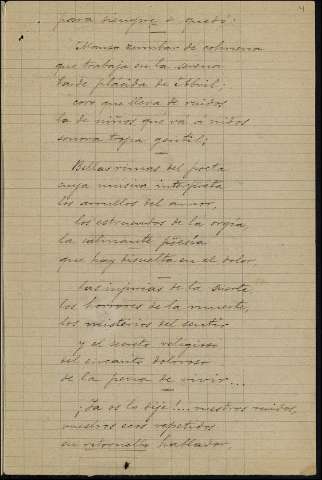 4
para siempre se quedó.
Manso zumbar de colmena
que trabaja en la serena
tarde plácida de Abril;
coro que lleva de ruidos
la de niños que vá á nidos
sonora tropa gentil;
Bellas rimas del poeta
cuya música interpreta
los arrullos del amor,
los estruendos de la orgía,
la calmante poesía
que hay disuelta en el dolor,
las injurias de la suerte
los horrores de la muerte,
los misterios del sentir
y el secreto religioso
del encanto doloroso
de la pena de vivir...
¡Ya os lo dije!.... nuestros ruidos,
nuestros ecos repetidos
en retornelo hablador,